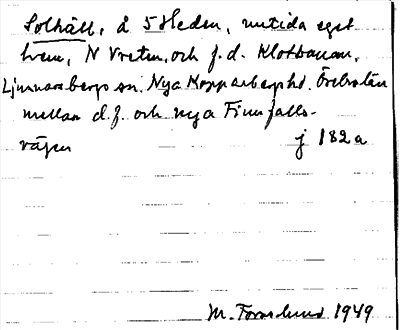 Solhäll, å S Heden, nutida eget
hem, N Vreten, och f.d. Klotbanan,
Ljusnarsbergs sn, Nya Kopparbergs hd, Örebro län
mellan d.g. och nya Finnfalls-
vägen j 182 a
M. Forslund 1949